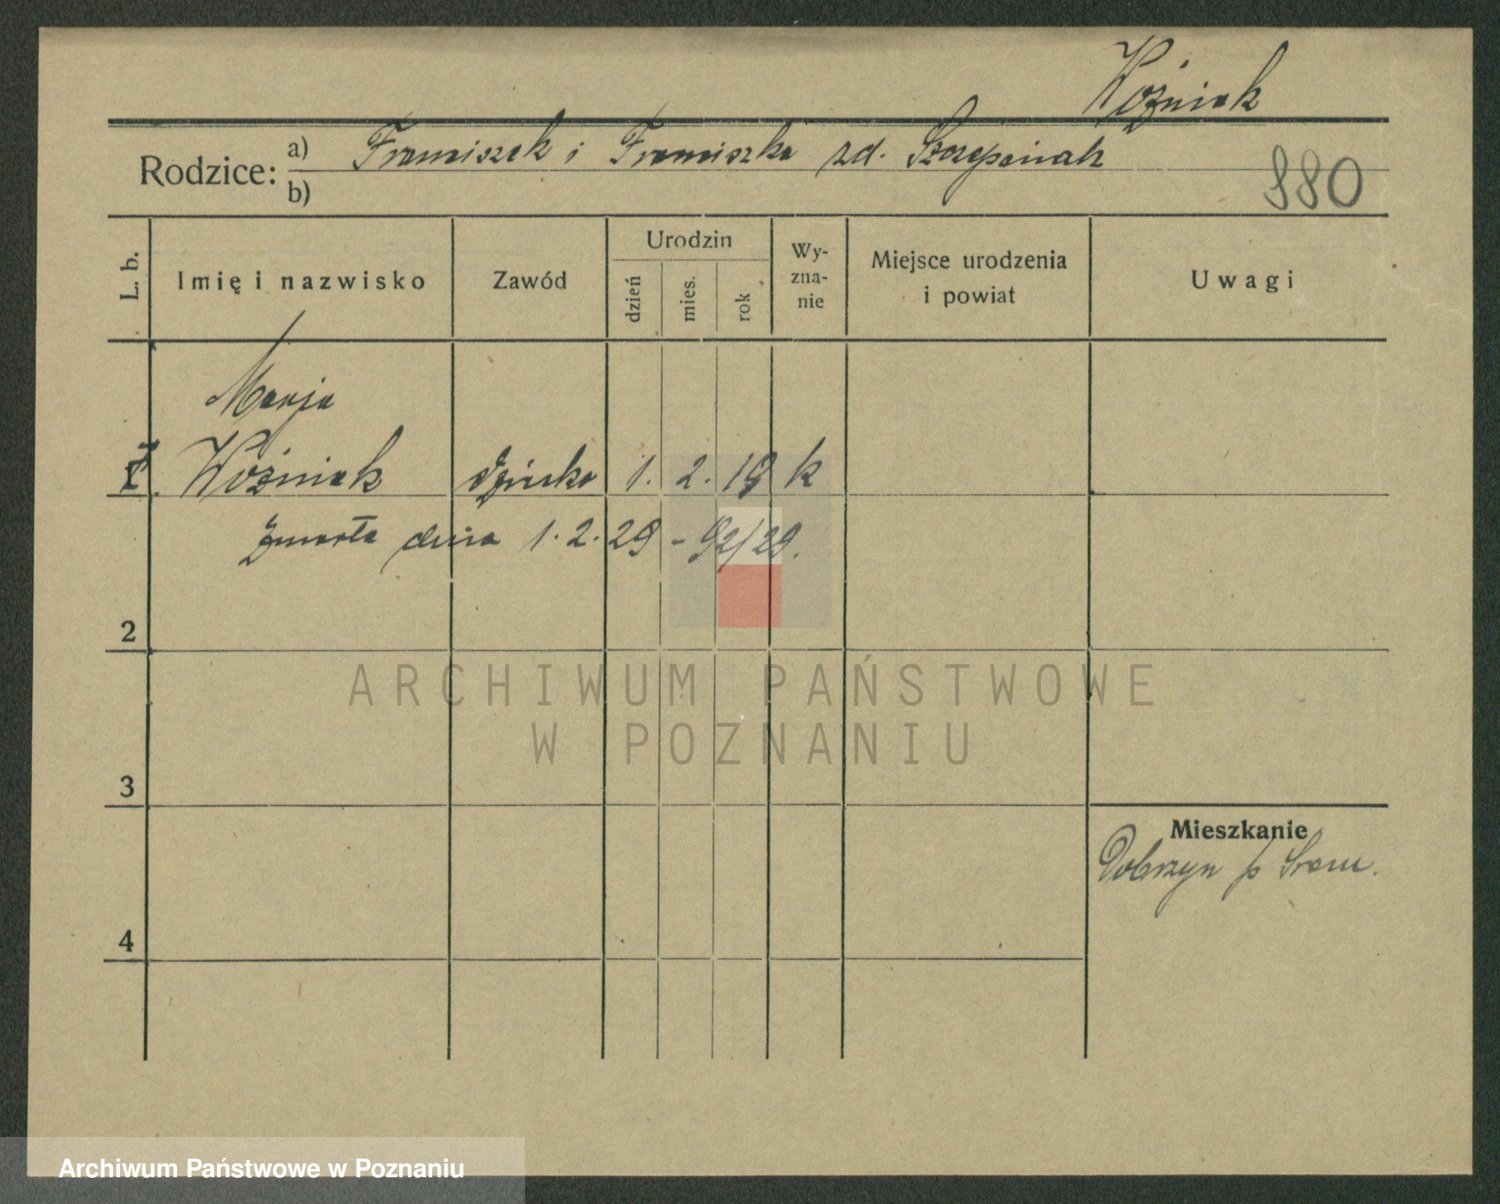 Woźniak
Rodzice: a) Franciszek i Franciszka zd. Szczepaniak
b)
880
L. b.
Imię i nazwisko
Zawód
Urodzin
dzień
mies.
rok
Wy-
zna-
nie
Miejsce urodzenia
i powiat
Uwagi
Marja
Woźniak dziecko 1. 2. 19 k
zmarła dnia 1.2.29 - 92/29.
2
3
Mieszkanie
Dobrzyn p Śrem.
4
ARCHIWUM PAŃSTWOWE
W POZNANIU
Archiwum Państwowe w Poznaniu